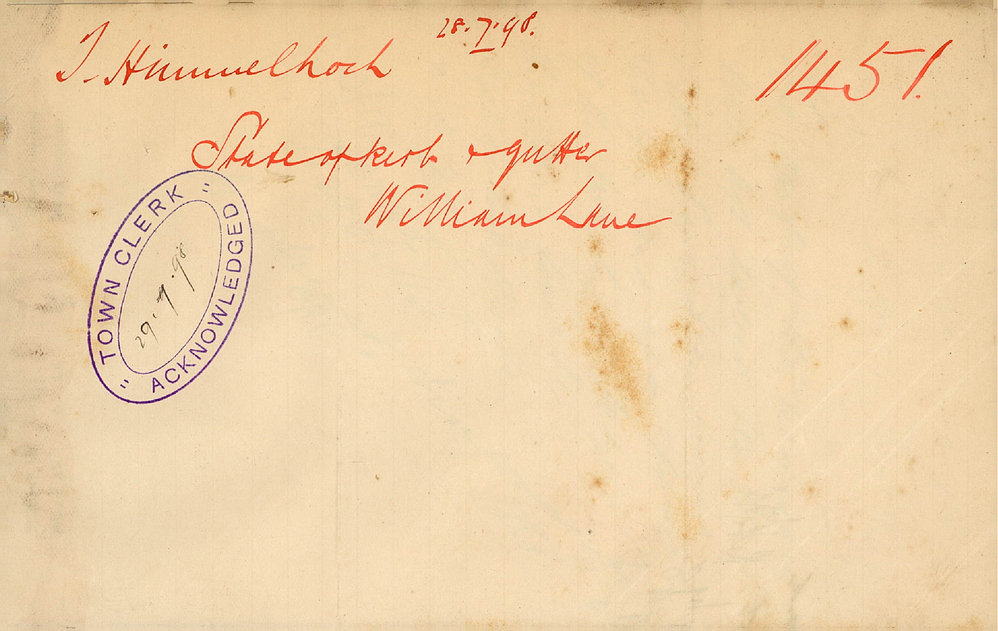 28.7.98.
J. Himmelhoch
1451.
State of kerb & gutter
William Lane
"TOWN CLERK"
29.7.98
ACKNOWLEDGED